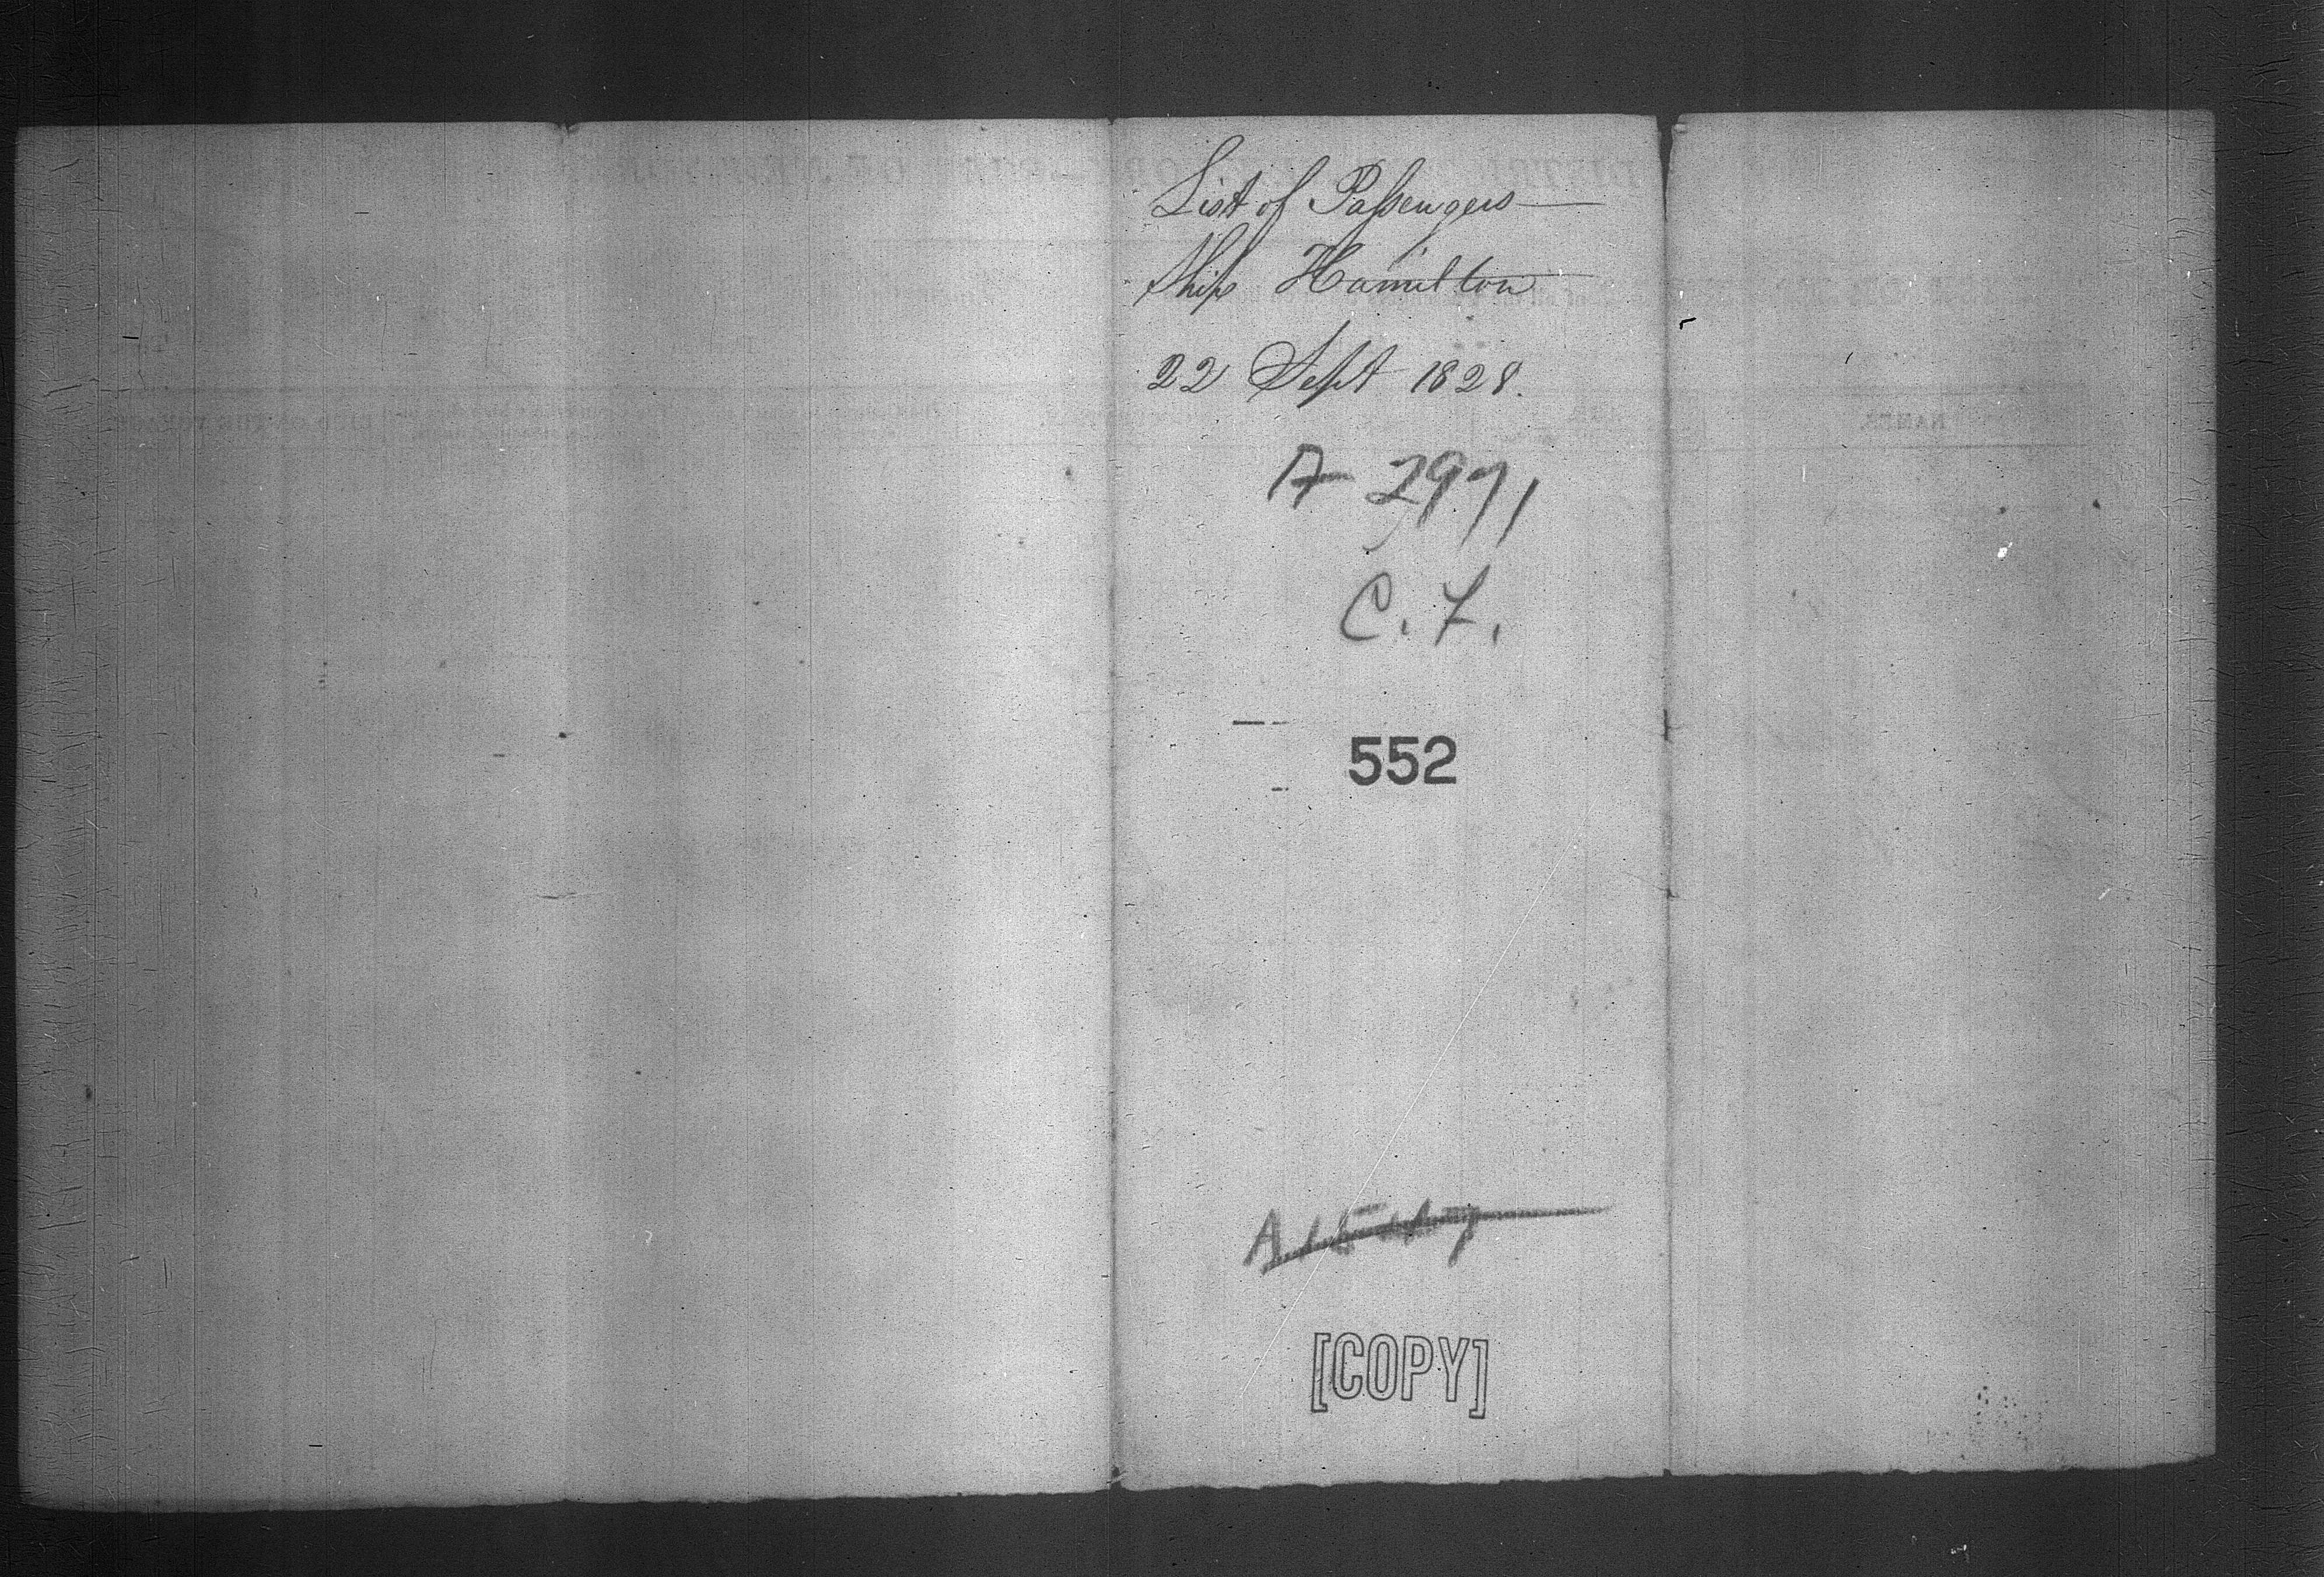 List of Passengers
Ship Hamilton
22 Sept 1828.
A 2971
C. F.
552
[COPY]